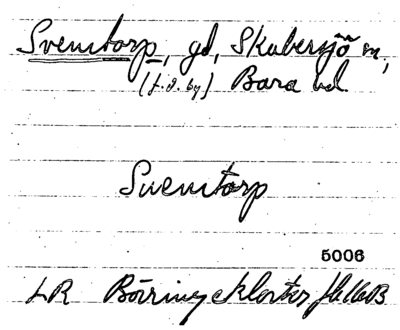 Svenstorp, gd, Skabersjö sn,
(f.d. by) Bara hd
Svenstorp
5006
LR Börringekloster